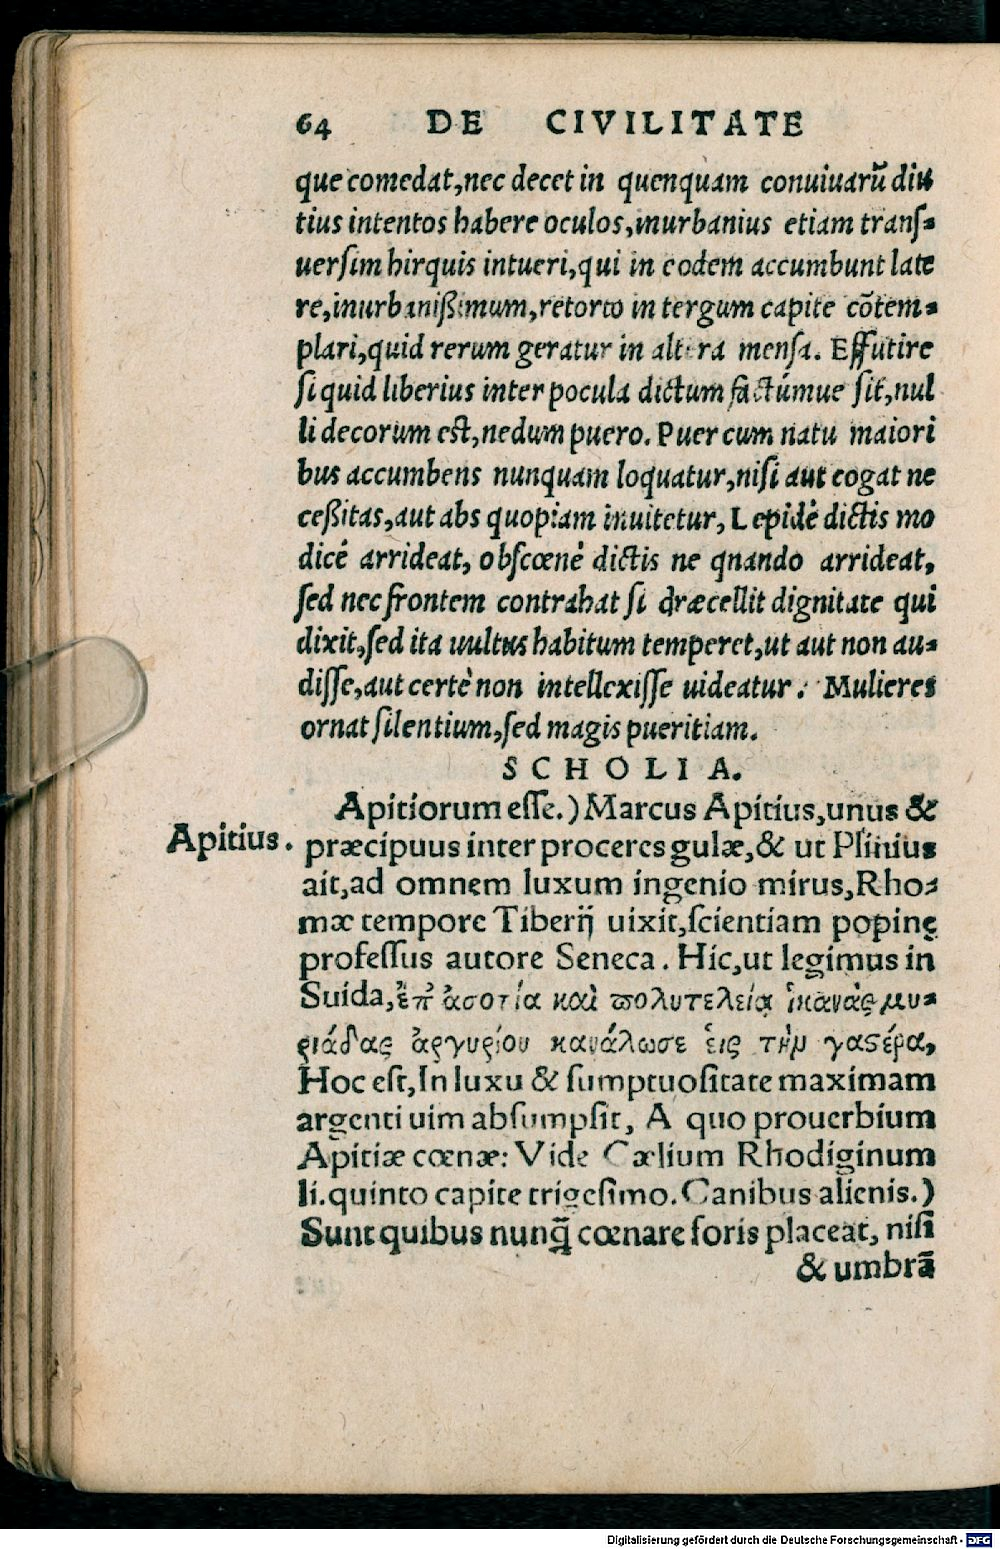 64 DE CIVILITATE
que comedat, nec decet in quenquam conuiuarũ diu
tius intentos habere oculos, inurbanius etiam transſ⸗
uersim hirquis intueri, qui in eodem accumbunt late
re, inurbanißimum, retorto in tergum capite cõtem⸗
plari, quid rerum geratur in altera mensa. Effutire
si quid liberius inter pocula dictum factúmue sit, nul
li decorum est, nedum puero. Puer cum natu maiori
bus accumbens nunquam loquatur, nisi aut cogat ne
ceßitas, aut abs quopiam inuitetur, Lepidè dictis mo
dicè arrideat, obscœnè dictis ne qnando arrideat,
sed nec frontem contrahat si præcellit dignitate qui
dixit, sed ita uultus habitum temperet, ut aut non au⸗
disse, aut certè non intellexisse uideatur. Mulieres
ornat silentium, sed magis pueritiam.
SCHOLIA.
Apitiorum esse.) Marcus Apitius, unus &
Apitius.
præcipuus inter proceres gulæ, & ut Plinius
ait, ad omnem luxum ingenio mirus, Rho⸗
mæ tempore Tiberij uixit, scientiam popinę
professus autore Seneca. Hic, ut legimus in
Suida, ἐπ' ἀσοτία καὶ πολυτελεία ἱκανὰς μυ⸗
ριάδας ἀργυρίου κανάλωσε εἰς τὴμ γαστέρα,
Hoc est, In luxu & sumptuositate maximam
argenti uim absumpsit, A quo prouerbium
Apitiæ cœnæ: Vide Cælium Rhodiginum
li. quinto capite trigesimo. Canibus alienis.)
Sunt quibus nunq̃ cœnare foris placeat, nisi
& umbrã
Digitalisierung gefördert durch die Deutsche Forschungsgemeinschaft - DFG